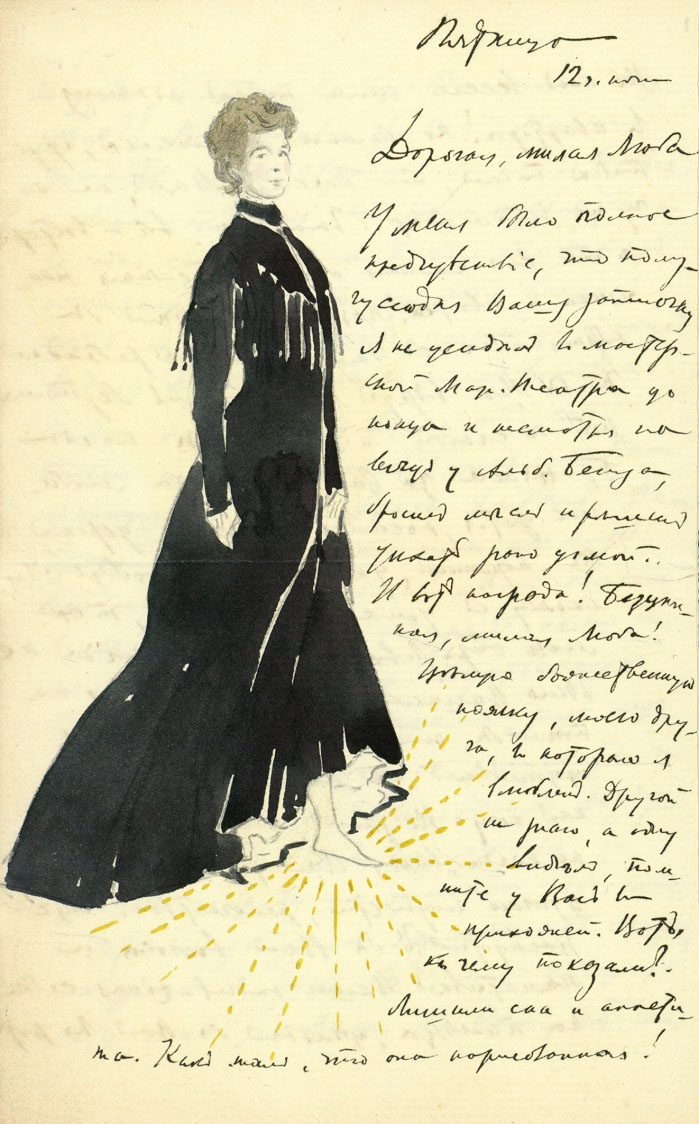 Пятница
12 ч. ночи
Дорогая, милая Люба
У меня было полное
предчувствіе, что полу-
чу сегодня Вашу записочку
Я не усидѣлъ въ мастер-
ской Мар. Театра до
конца и несмотря на
вечеръ у Альб. Бенуа,
бросил и рѣшилъ
уѣхать рано домой..
И вотъ награда! Безум-
ная, милая Люба!
Цѣлую божественную
ножку, мою дру-
га, въ которую я
влюбленъ. Другой
не знаю, а одну
видѣлъ, пом-
ните у Васъ въ
прихожей. Вотъ,
къ чему показали?
Лишили сна и аппети-
та. Какъ жаль, что она нарисованная!